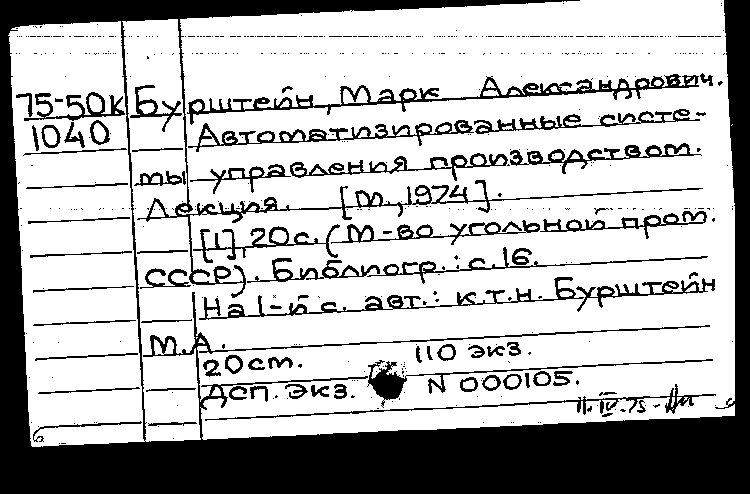 75-50к Бурштейн, Марк Александрович.
1040 Автоматизированные систе-
мы управления производством.
Лекция. [М., 1974].
[1], 20 с. (М-во угольной пром.
СССР). Библиогр.: с. 16.
На 1-й с. авт.: к.т.н. Бурштейн
М.А.
20 см. 110 экз.
ДСП. экз. N 000105.
11.IV.75